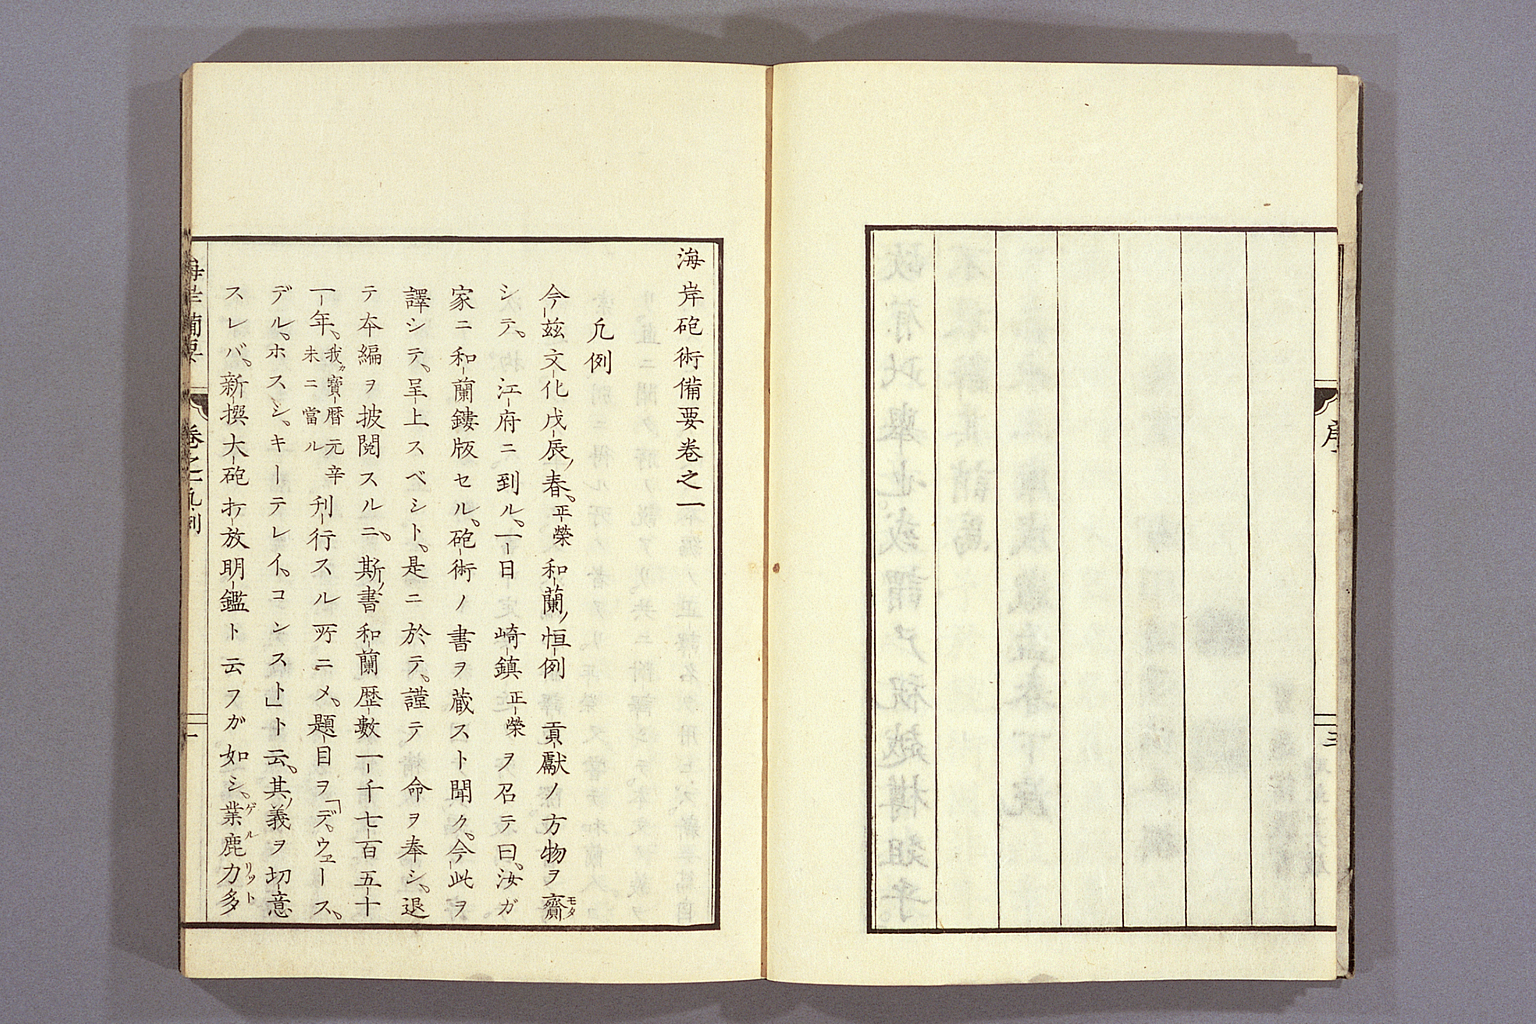 序
三
海岸砲術備要卷之一
凡例
今茲文化戊辰ノ春、正榮和蘭ノ恒例貢獻ノ方物ヲ齎モタ
シテ、江府ニ到ル、一日崎鎮正榮ヲ召テ曰、汝ガ
家ニ和蘭鏤版セル、砲術ノ書ヲ藏スト聞ク、今此ヲ
譯シテ、呈上スベシト、是ニ於テ、謹テ命ヲ奉シ、退
テ本編ヲ披閲スルニ、斯ノ書和蘭歴數一千七百五十
一年、我ガ寶暦元辛未ニ當ル刊行スル所ニメ、題目ヲ「デ、ウェース、
デル、ホスシ、キーテレイ、コンスト」ト云、其ノ義ヲ切意
スレバ、新撰大砲打放明鑑ト云フガ如シ、業鹿力多ゲルリット
海岸備要 卷之一凡例 一